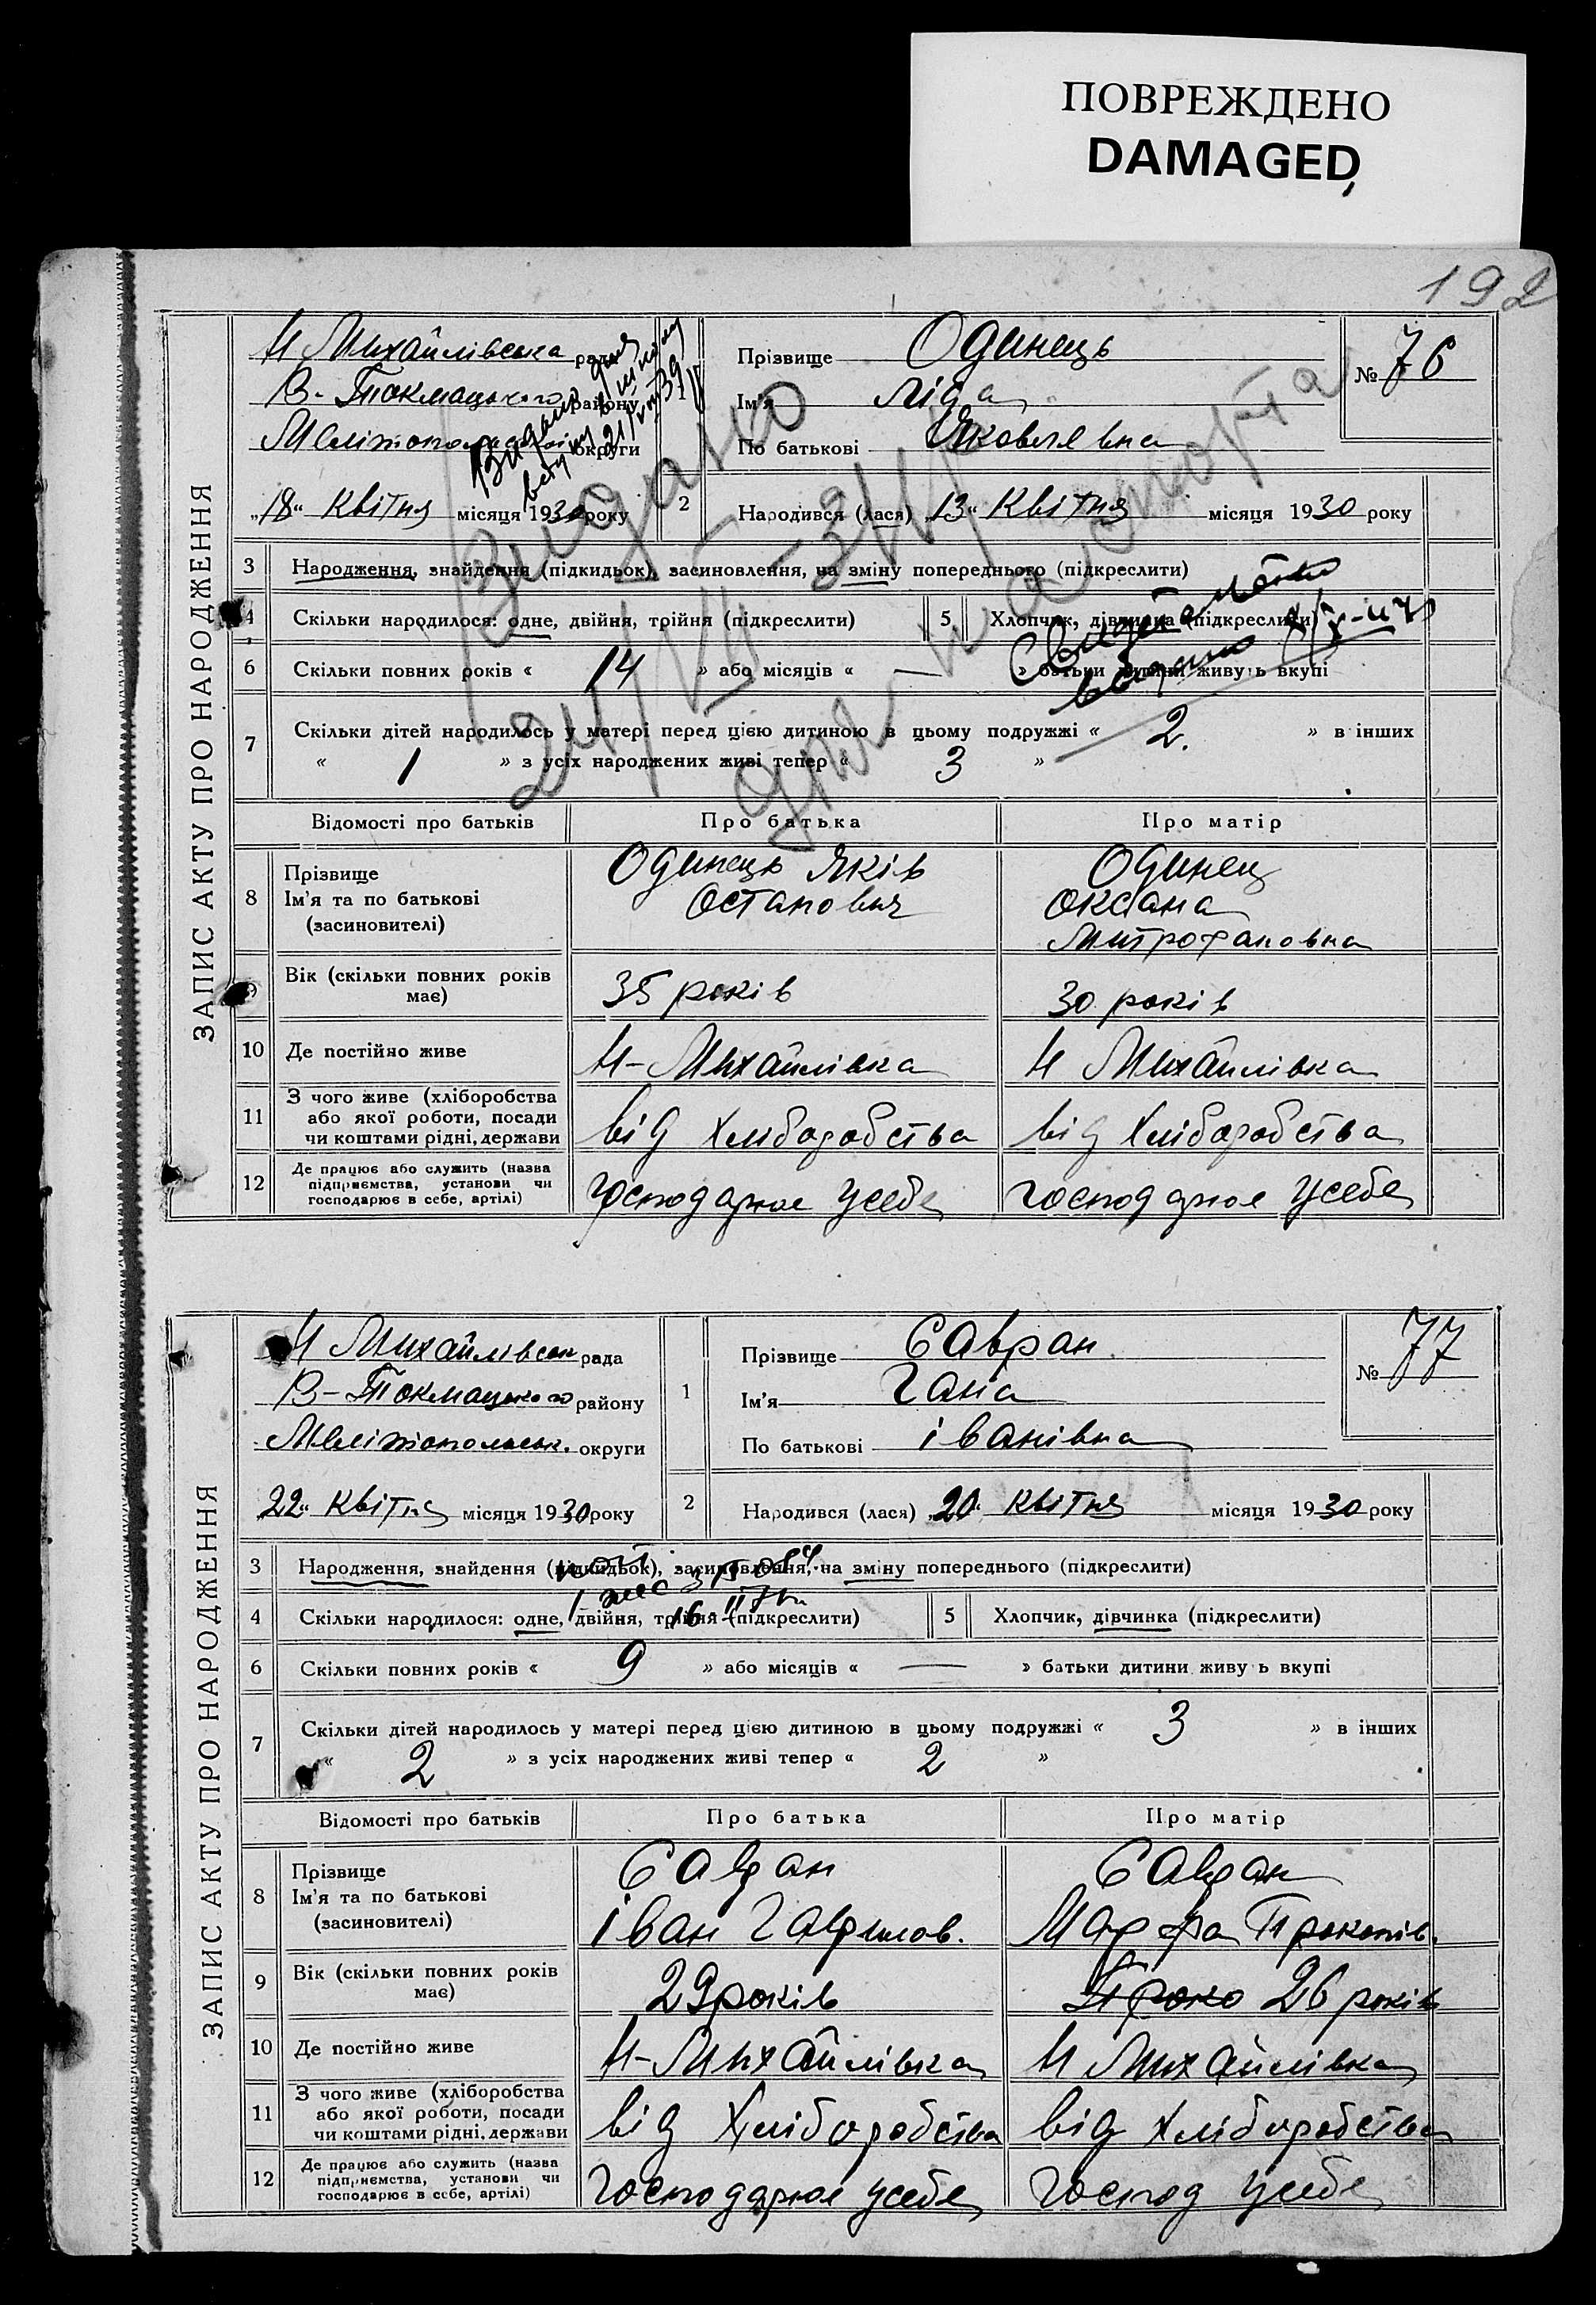 ПОВРЕЖДЕНО
DAMAGED
192
ЗАПИС АКТУ ПРО НАРОДЖЕННЯ
Н Михайлівська рада
В-Токмацького району
округи
„18“ Квітня місяця 1930 року
1
Прізвище Одинець
Ім'я Ліда
По батькові Яковлевна
№ 76
2
Народився (лася) „13“ Квітня місяця 1930 року
3 Народження, знайдення (підкидьок), засиновлення, на зміну попереднього (підкреслити)
4 Скільки народилося: одне, двійня, трійня (підкреслити)
5 Хлопчик, дівчинка (підкреслити)
6 Скільки повних років « 14 » або місяців « — » батьки дитини живуть вкупі
7 Скільки дітей народилось у матері перед цією дитиною в цьому подружжі « 2. » в інших
« 1 » з усіх народжених живі тепер « 3 »
Видано
для паспорта
Відомості про батьків Про батька Про матір
8 Прізвище
Ім'я та по батькові
(засиновителі)
Одинець Яків
Остапович
Одинец
Оксана
Митрофановна
9 Вік (скільки повних років має) 35 років 30 років
10 Де постійно живе Н-Михайлівка Н Михайлівка
11 З чого живе (хліборобства
або якої роботи, посади
чи коштами рідні, держави
від Хліборобства від Хліборобства
12 Де працює або служить (назва
підприємства, установи чи
господарює в себе, артілі)
господарює усебе господарює усебе
ЗАПИС АКТУ ПРО НАРОДЖЕННЯ
Н Михайлівськ рада
В-Токмацького району
Мелітопольськ. округи
22“ Квітня місяця 1930 року
1
Прізвище Савран
Ім'я Гана
По батькові Іванівна
№ 77
2
Народився (лася) „20“ Квітня місяця 1930 року
3 Народження, знайдення (підкидьок), засиновлення, на зміну попереднього (підкреслити)
4 Скільки народилося: одне, двійня, трійня (підкреслити)
5 Хлопчик, дівчинка (підкреслити)
6 Скільки повних років « 9 » або місяців « — » батьки дитини живу ь вкупі
7 Скільки дітей народилось у матері перед цією дитиною в цьому подружжі « 3 » в інших
« 2 » з усіх народжених живі тепер « 2 »
Відомості про батьків Про батька Про матір
8 Прізвище
Ім'я та по батькові
(засиновителі)
Савран
Іван Гаврилов.
Савран
Марфа Прокопів.
9 Вік (скільки повних років має) 29 років 26 років
10 Де постійно живе Н-Михайлівка Н Михайлівка
11 З чого живе (хліборобства
або якої роботи, посади
чи коштами рідні, держави
від Хліборобства від Хліборобства
12 Де працює або служить (назва
підприємства, установи чи
господарює в себе, артілі)
господарює усебе господ усебе